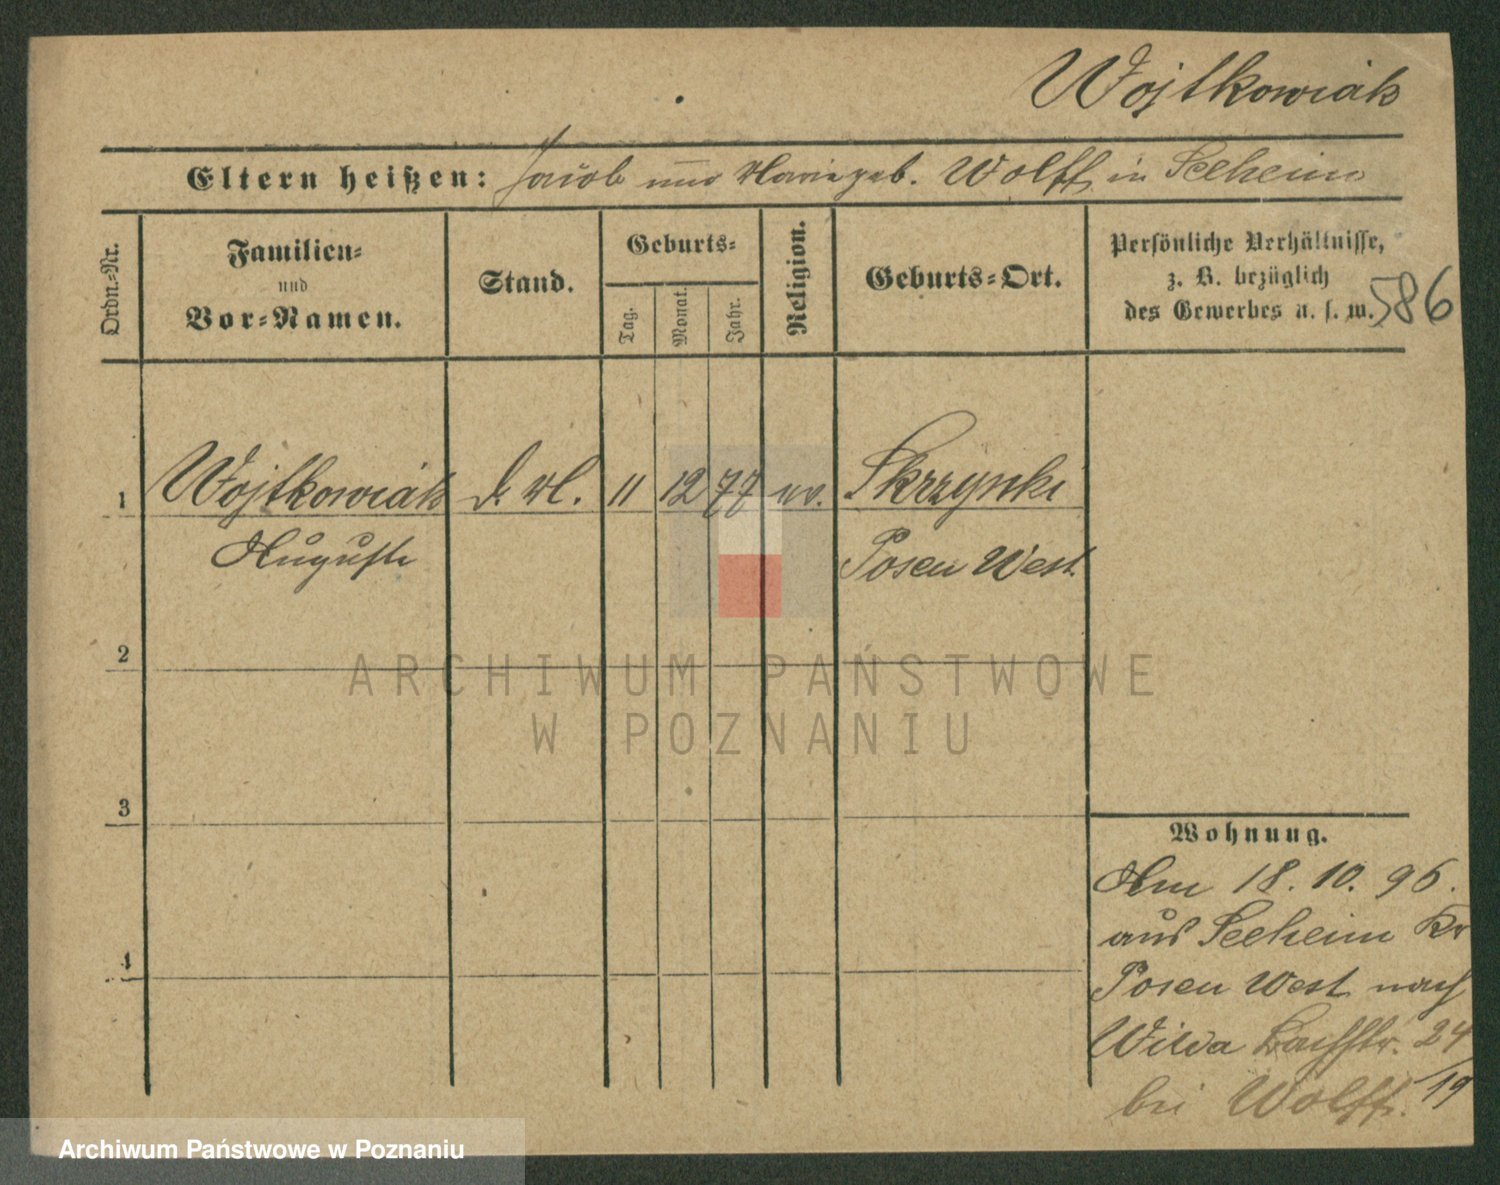 Wojtkowiak
Eltern heißen: Jacob und Marie geb. Wolff in Seeheim
Ordn.-Nr.
Familien-
und
Vor-Namen.
Stand.
Geburts-
Tag.
Monat.
Jahr.
Religion.
Geburts-Ort.
Persönliche Verhältnisse,
z. B. bezüglich
des Gewerbes u. s. w.
586
1 Wojtkowiak 11 12 77 ev. Skrzynki
Auguste Posen West
2
3
4
Wohnung.
Am 18. 10. 96.
aus Seeheim Kr
Posen West nach
Wilda Bachstr. 24
bei Wolff. /19
ARCHIWUM PAŃSTWOWE
W POZNANIU
Archiwum Państwowe w Poznaniu